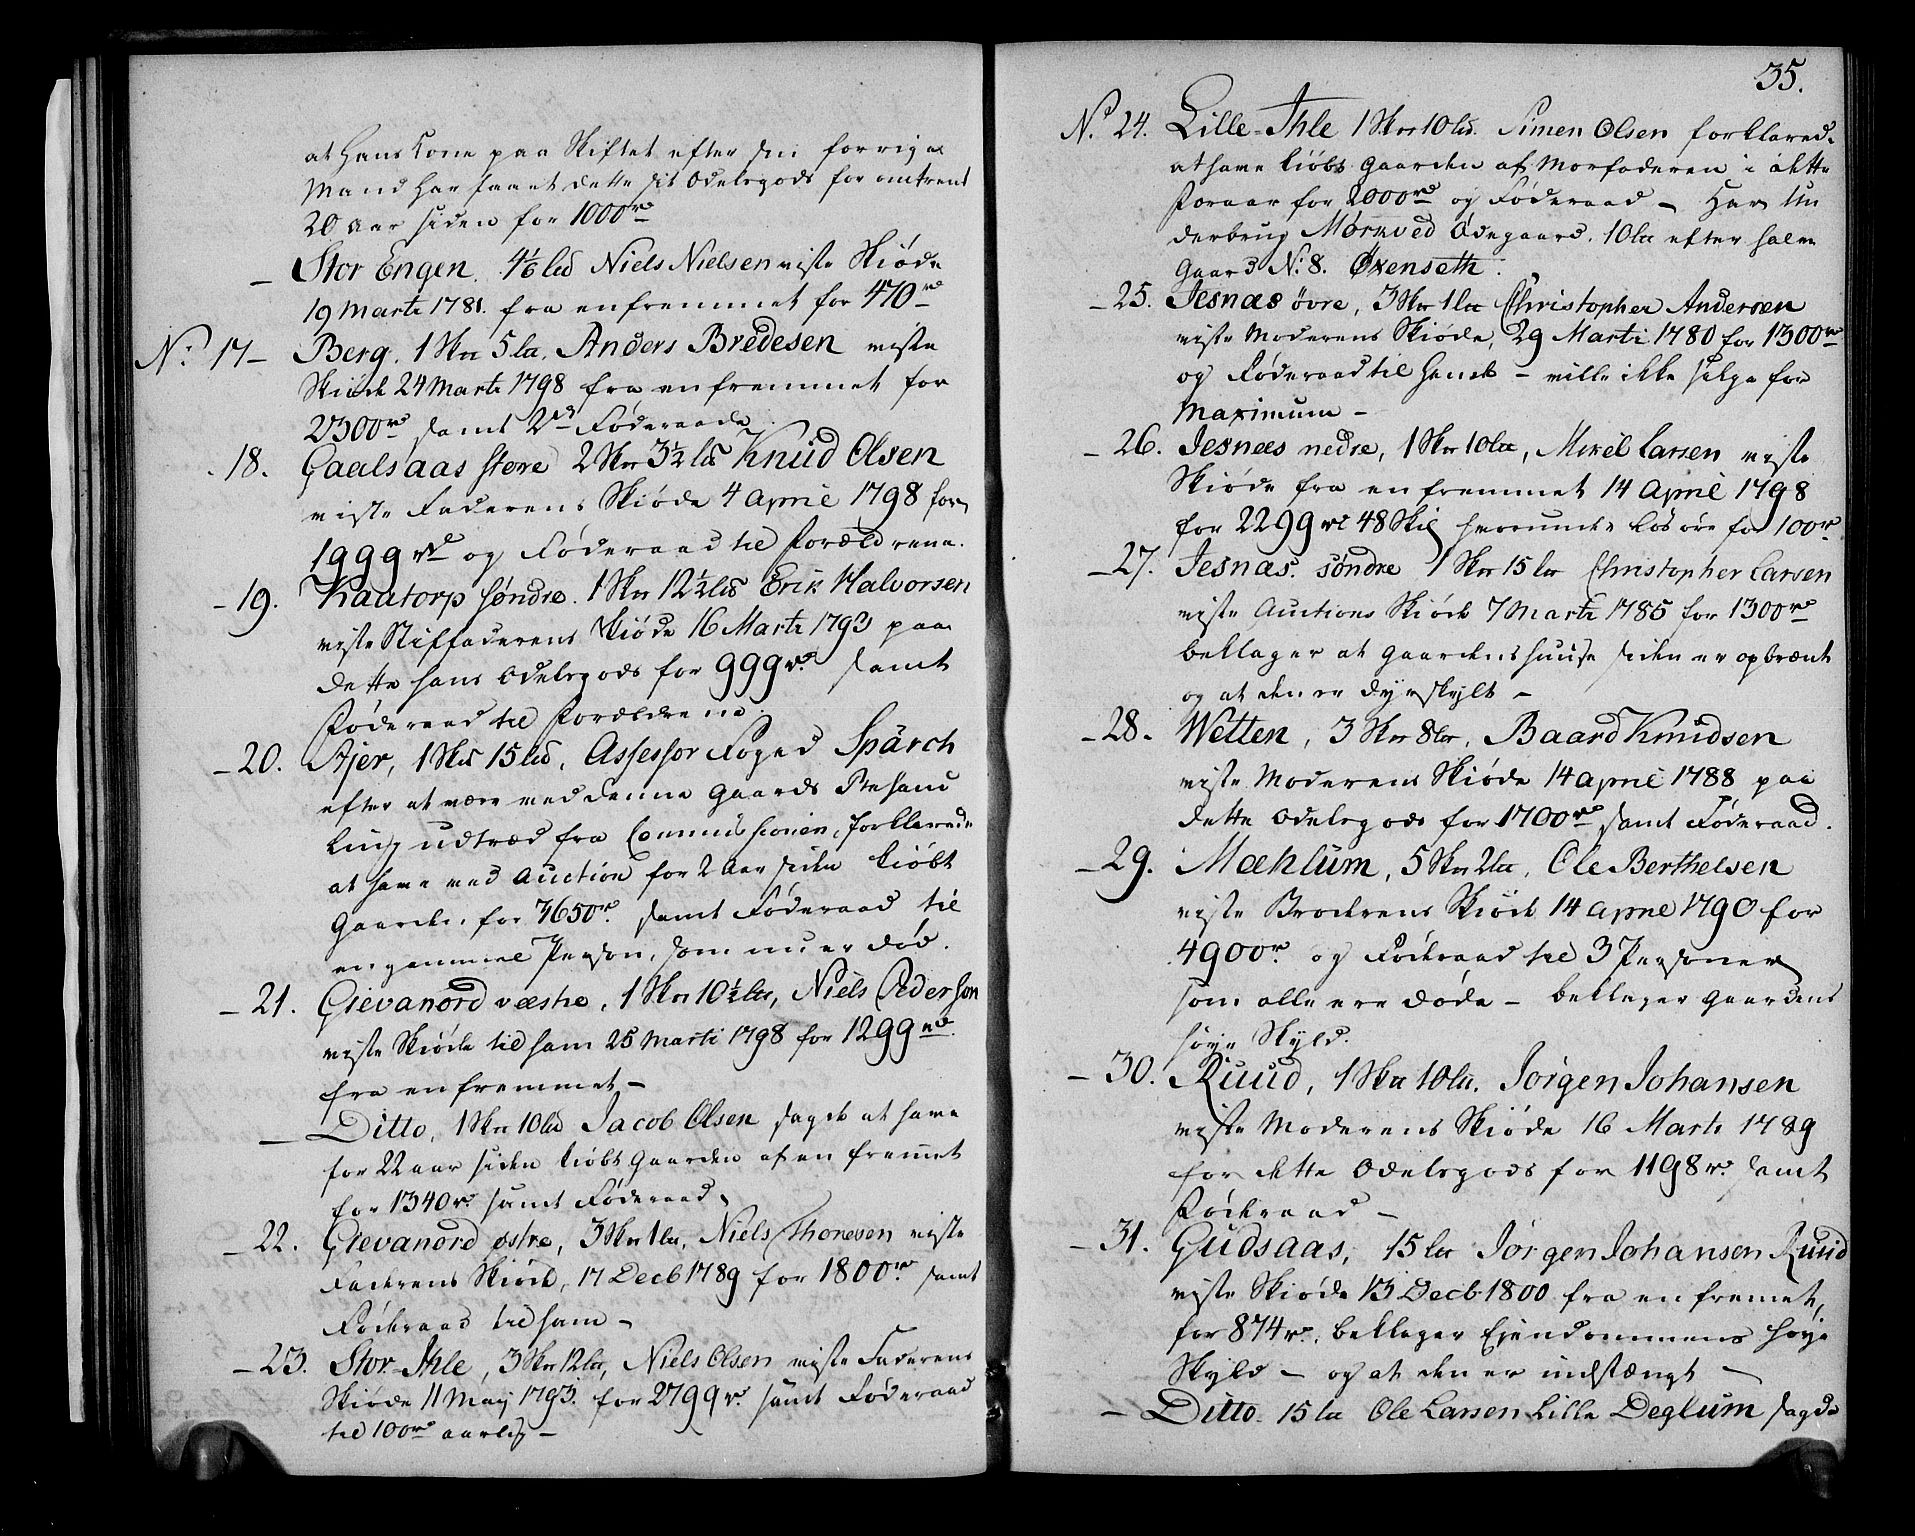 at Hans Kone paa Skiftet efter sin forrige
Mand har faaet dette sit Odelsgods for omtrent
20 Aar siden for 1000 rd
– Stor Engen. 4 1/6 Lad Niels Nielsen viste Skiøde
19 Marti 1781. fra en fremmet for 470 rd
No. 17 – Berg. 1 Skn 5 la, Anders Bredesen viste
Skiøde 24 Marti 1798 fra en fremmet for
2300 rd samt 2de Føderaade
18. Gaalsaas store 2 Skn 3½ lad Knud Olsen
viste Faderens Skiøde 4 April 1798 for
1999 rd og Føderaad til Forældrene.
– 19. Kaatorp søndre. 1 Skn 12½ lad Erik Halvorsen
viste Stiffaderens Skiøde 16 Marti 1793 paa
dette hans Odelsgods for 999 rd samt
Føderaad til Forældrene.
– 20. Ajer, 1 Skd 15 lad, Assessor Foged Spärch
efter at være ved denne Gaards Behand
ling udtræd fra Commissionen, forklarede
at have ved Auction for 2 Aar siden kiøbt
Gaarden for 4650 rd samt Føderaad til
en gammel Person, som nu er død.
– 21. Gievanord væstre, 1 Skn 10½ la, Niels Pederson
viste Skiøde til ham 25 Marti 1798 for 1299 rd
fra en fremmet –
– Ditto, 1 Skn 10 lad Jacob Olsen sagde at have
for 22 aar siden kiøbt Gaarden af en fremmet
for 1340 rd samt Føderaad
– 22. Gievanord østre, 3 Skn 1 la, Niels Thoresen viste
Faderens Skiøde, 17 Decb 1789 for 1800 rd samt
Føderaad til ham –
– 23. Stor-Ihle, 3 Skn 12 la, Niels Olsen viste Faderens
Skiøde 11 May 1793. for 2799 rd samt Føderaad
til 100 rd aarlig –
35.
No. 24. Lille-Ihle 1 Skn 10 lad. Simen Olsen forklared.
at have kiøbt Gaarden af Morfaderen i dette
Foraar for 2000 rd og Føderaad – Har Un
derbrug Mørkved Ødegaard. 10 la efter halve
Gaard No. 8. Øxenseth.
– 25. Jesnæs øvre, 3 Skn 1 la Christopher Andersen
viste Moderens Skiøde, 29 Marti 1780 for 1300 rd
og Føderaad til hende – ville ikke sælge for
Maximum –
– 26. Jesnæs nedre, 1 Skn 10 la, Mikel Larsen viste
Skiøde fra en fremmet 14 April 1798
for 2299 rd 48 Skil hvorunder løsøre for 100 rd
– 27. Jesnæs. søndre 1 Skn 15 la Christopher Larsen
viste Auctions Skiøde 7 Marti 1785 for 1300 rd
beklager at Gaardens huuse siden er opbrænt
og at den er dyrskylt –
– 28. Wetten, 3 Skn 8 la, Baard Knudsen
viste Moderens Skiøde 14 April 1788 paa
dette Odelsgods for 1700 rd samt Føderaad.
– 29. Mæhlum, 5 Skn 2 la, Ole Berthelsen
viste Broderens Skiøde 14 April 1790 for
4900 rd og Føderaad til 3 Personer
som alle ere døde – beklager Gaardens
høye Skyld.
– 30. Ruud, 1 Skn 10 la. Jørgen Johansen
viste Moderens Skiøde 16 Marti 1789
for dette Odelsgods for 1198 rd samt
Føderaad –
– 31. Gudsaas, 15 la Jørgen Johansen Ruud
viste Skiøde 13 Decb. 1800 fra en fremet,
for 874 rd. beklager Ejendommens høje
Skyld – og at den er indstængt –
– Ditto. 15 la Ole Larsen Lille Deglum sagde